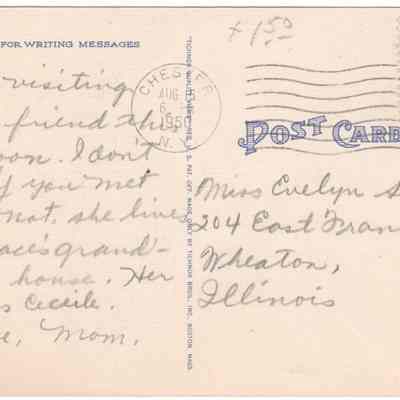 FOR WRITING MESSAGES
visiting
friend this
oon. I don't
f you met
not, she lives
ace's grand-
house. Her
s Cecile.
e, Mom.
"TICHNOR QUALITY VIEWS," REG. U. S. PAT. OFF. MADE ONLY BY TICHNOR BROS., INC., BOSTON, MASS.
+1.50
CHESTER
AUG
6
1950
N.Y.
POST CARD
Miss Evelyn S
204 East Fran
Wheaton,
Illinois